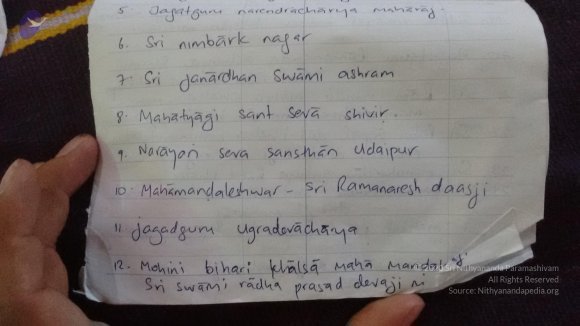 5 Jagatguru narendrachārya mahārāj.
6. Sri nimbārk nagar
7. Sri janārdhan Swāmi ashram
8. Mahātyāgi sant sevā shivir.
9. Narayan seva sansthān Udaipur
10. Mahāmandaleshwar - Sri Ramanaresh daasji
11. jagadguru ugradevāchārya
12. Mohini bihari khālsā Mahā Mandal
Sri swāmi rādha prasad devaji m
Sri Nithyananda Paramashivam
All Rights Reserved
Source: Nithyanandapedia.org